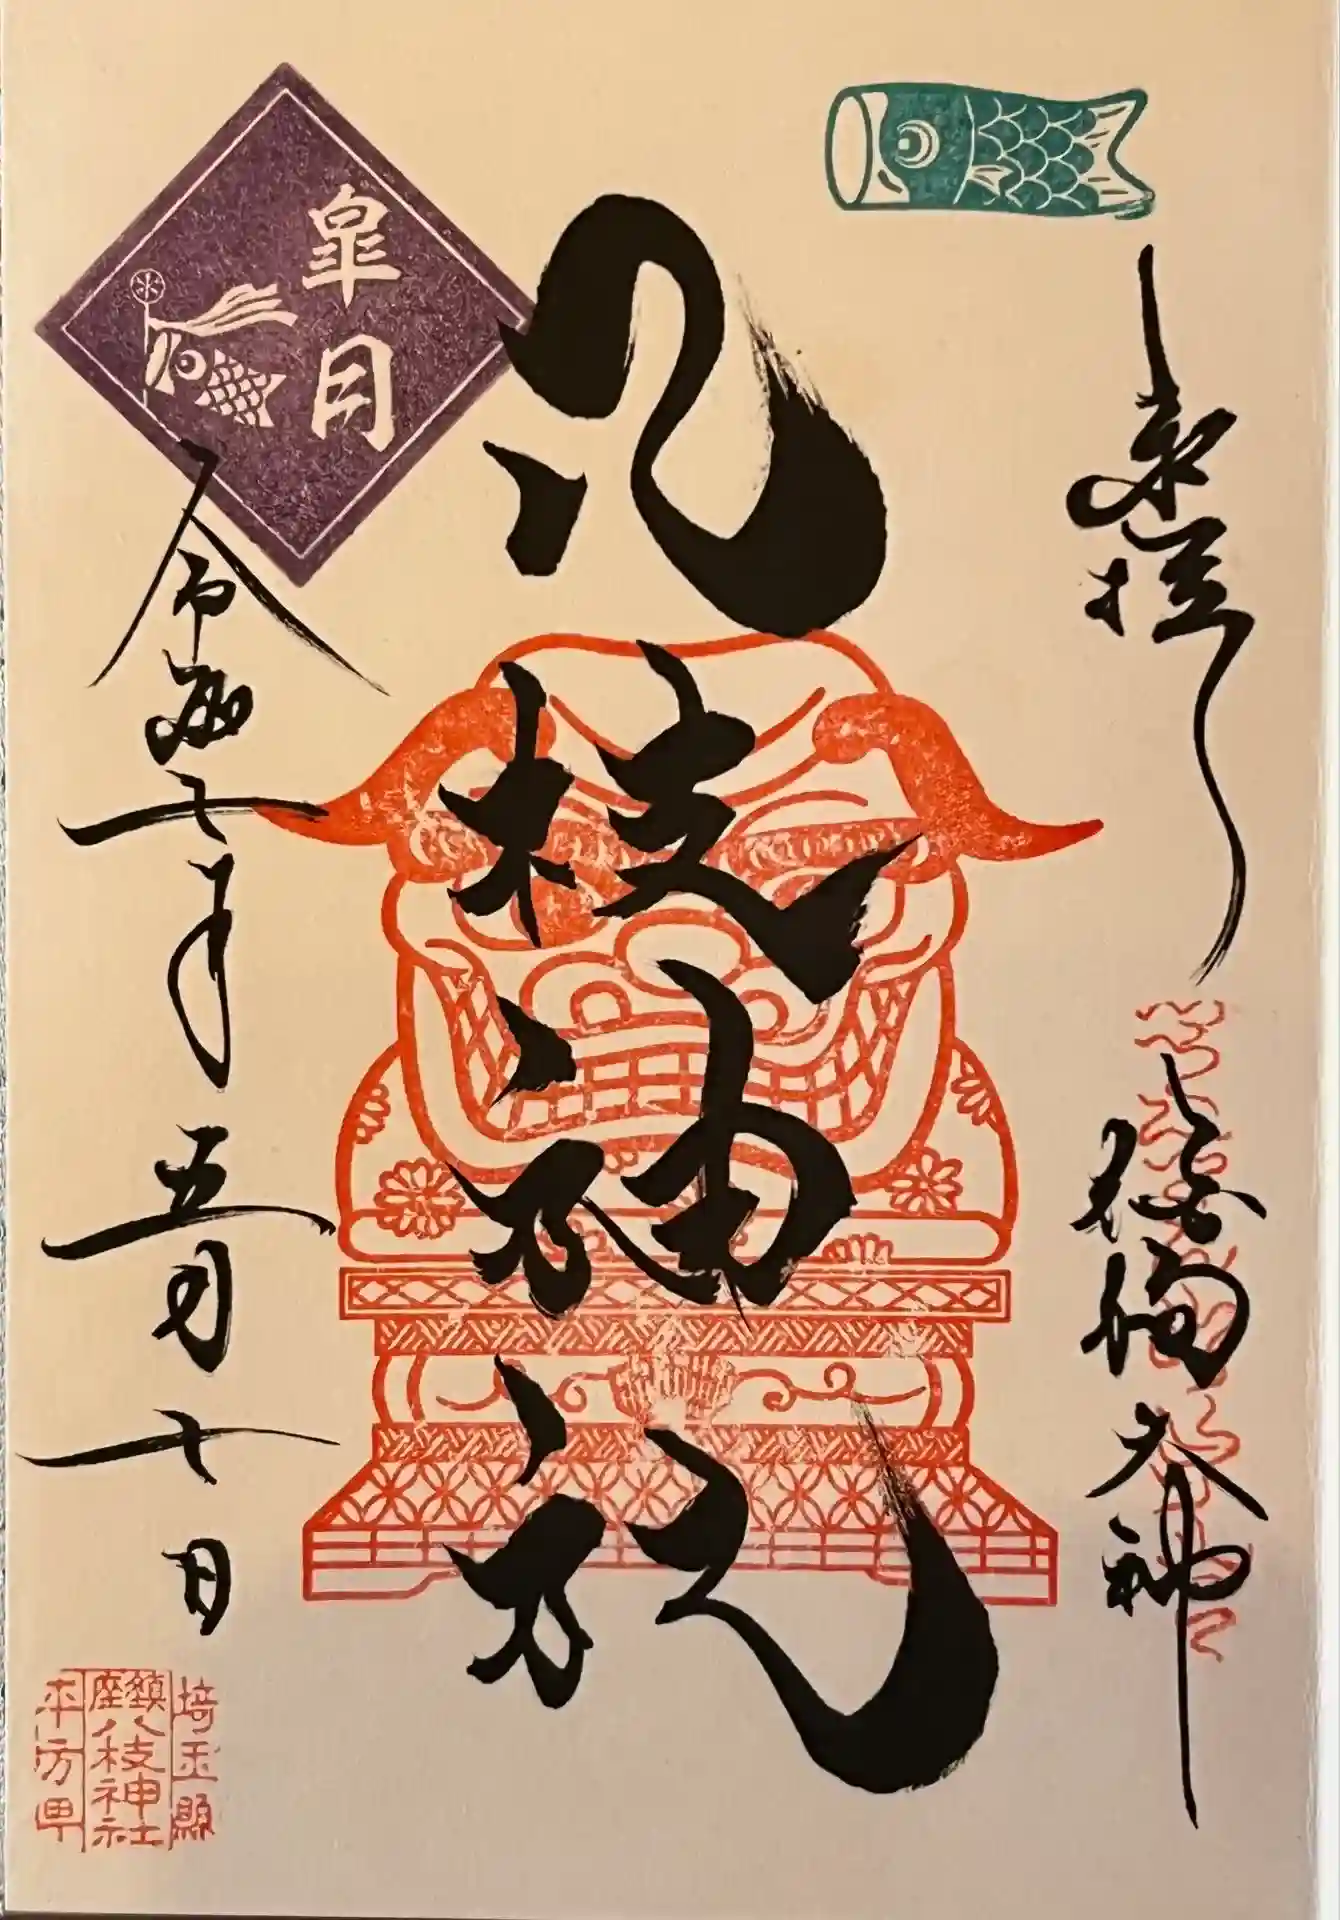 奉拝
狛狗大神
八枝神社
皐月
令和七年五月七日
埼玉縣
鎮座八枝神社
平方町